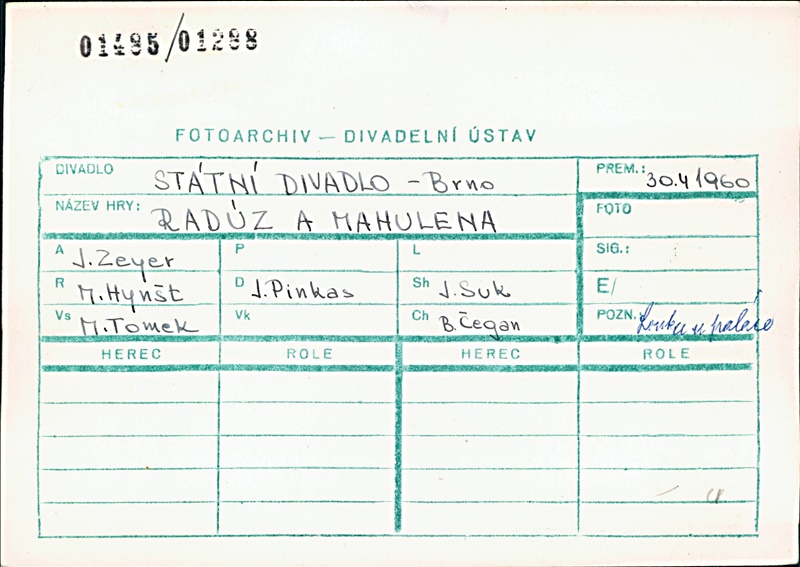 01485/01288
FOTOARCHIV — DIVADELNÍ ÚSTAV
DIVADLO STÁTNÍ DIVADLO - Brno PREM.: 30.4 1960
NÁZEV HRY: RADÚZ A MAHULENA FOTO
A J. Zeyer P L SIG.:
R M. Hynšt D J. Pinkas Sh J. Suk E/
Vs M. Tomek Vk Ch B. Čegan POZN.:
HEREC ROLE HEREC ROLE